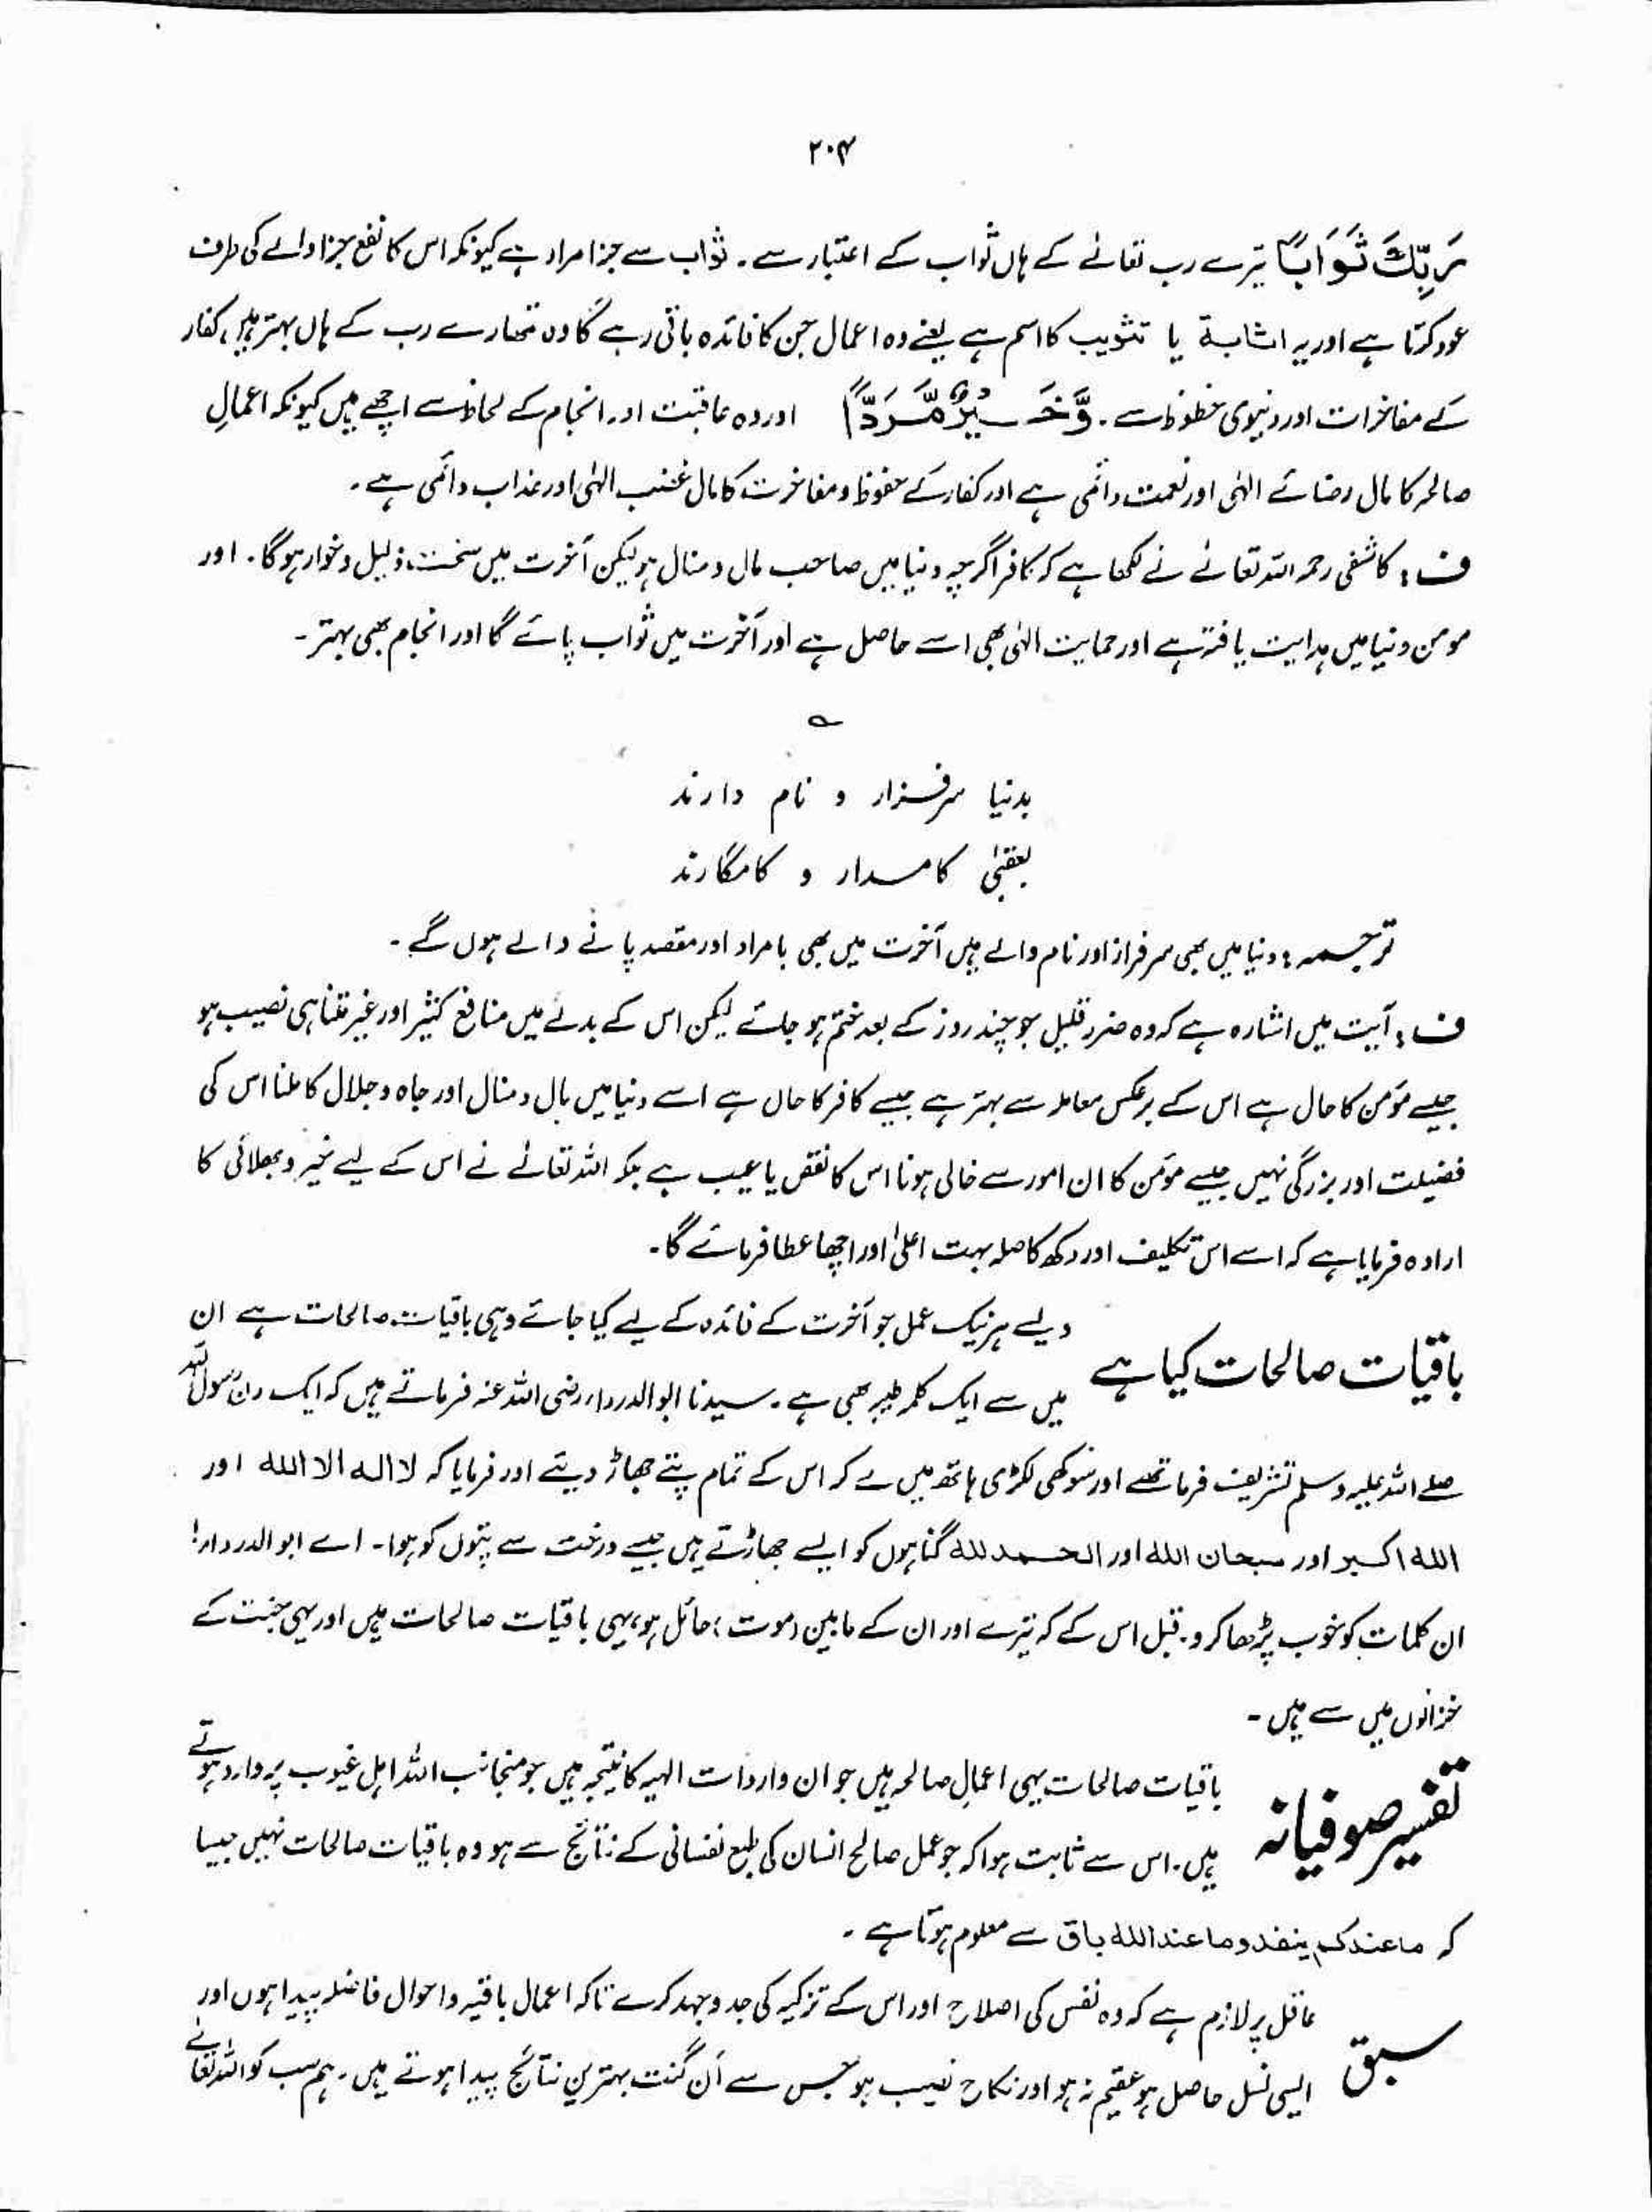 ۲۰۴
رَبِّكَ ثَوَابًا تیرے رب تعالےٰ کے ہاں ثواب کے اعتبار سے۔ ثواب سے جزا مراد ہے کیونکہ اس کا نفع جزا والے کی طرف
عود کرتا ہے اور یہ اثابة یا تثویب کا اسم ہے یعنے وہ اعمال جن کا فائدہ باقی رہے گا وہ تمھارے رب کے ہاں بہتر ہیں، کفار
کے مفاخرات اور دنیوی حظوظ سے۔ وَّخَيْرٌ مَّرَدًّا اور وہ عاقبت اور انجام کے لحاظ سے اچھے ہیں کیونکہ اعمالِ
صالحہ کا مآل رضائے الہٰی اور نعمت دائمی ہے اور کفار کے حظوظ و مفاخرت کا مآل غضب الہٰی اور عذاب دائمی ہے۔
ف : کاشفی رحمہ اللہ تعالےٰ نے لکھا ہے کہ کافر اگرچہ دنیا میں صاحب مال و منال ہو لیکن آخرت میں سخت ذلیل و خوار ہوگا۔ اور
مومن دنیا میں ہدایت یافتہ ہے اور حمایت الہٰی بھی اسے حاصل ہے اور آخرت میں ثواب پائے گا اور انجام بھی بہتر۔
؎
بدنیا سرفراز و نام دارند
بعقبیٰ کامدار و کامگارند
ترجمہ : دنیا میں بھی سرفراز اور نام والے ہیں آخرت میں بھی بامراد اور مقصد پانے والے ہوں گے۔
ف : آیت میں اشارہ ہے کہ وہ ضرر قلیل جو چند روز کے بعد ختم ہو جائے لیکن اس کے بدلے میں منافع کثیر اور غیر متناہی نصیب ہو
جیسے مؤمن کا حال ہے اس کے برعکس معاملہ سے بہتر ہے جیسے کافر کا حال ہے اسے دنیا میں مال و منال اور جاہ و جلال کا ملنا اس کی
فضیلت اور بزرگی نہیں جیسے مؤمن کا ان امور سے خالی ہونا اس کا نقص یا عیب ہے بلکہ اللہ تعالےٰ نے اس کے لیے خیر و بھلائی کا
ارادہ فرمایا ہے کہ اسے اس تکلیف اور دکھ کا صلہ بہت اعلیٰ اور اچھا عطا فرمائے گا۔
باقیات صالحات کیا ہے
ویسے ہر نیک عمل جو آخرت کے فائدہ کے لیے کیا جائے وہی باقیات صالحات ہے ان
میں سے ایک کلمہ طیبہ بھی ہے۔ سیدنا ابو الدرداء رضی اللہ عنہ فرماتے ہیں کہ ایک دن رسول اللہ
صلے اللہ علیہ وسلم تشریف فرما تھے اور سوکھی لکڑی ہاتھ میں لے کر اس کے تمام پتے جھاڑ دیئے اور فرمایا کہ لا الہ الا اللہ اور
اللہ اکبر اور سبحان اللہ اور الحمد للہ گناہوں کو ایسے جھاڑتے ہیں جیسے درخت سے پتوں کو ہوا۔ اے ابو الدرداء!
ان کلمات کو خوب پڑھا کرو۔ قبل اس کے کہ تیرے اور ان کے مابین (موت) حائل ہو، یہی باقیات صالحات ہیں اور یہی جنت کے
خزانوں میں سے ہیں۔
تفسیر صوفیانہ
باقیات صالحات یہی اعمالِ صالحہ ہیں جو ان واردات الہیہ کا نتیجہ ہیں جو منجانب اللہ اہل غیوب پر وارد ہوتے
ہیں۔ اس سے ثابت ہوا کہ جو عمل صالح انسان کی طبع نفسانی کے نتائج سے ہو وہ باقیات صالحات نہیں جیسا
کہ ماعندکم ینفد وما عند اللہ باق سے معلوم ہوتا ہے۔
سبق
عاقل پر لازم ہے کہ وہ نفس کی اصلاح اور اس کے تزکیہ کی جد و جہد کرے تاکہ اعمال باقیہ و احوال فاضلہ پیدا ہوں اور
ایسی نسل حاصل ہو عقیم نہ ہو اور نکاح نصیب ہو جس سے اَن گنت بہترین نتائج پیدا ہوتے ہیں۔ ہم سب کو اللہ تعالےٰ